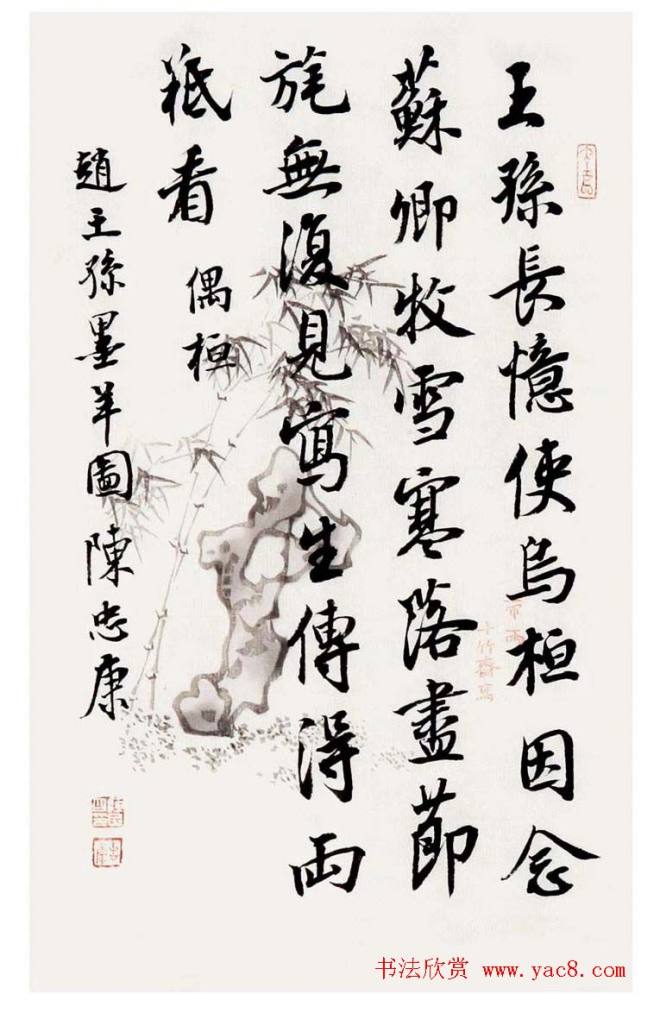 王孫長憶使烏桓因念
蘇卿牧雪寒落盡節
旄無復見寫生傳得兩
羝看 偶桓
趙王孫墨羊圖陳忠康
十竹齋寫
书法欣赏 www.yac8.com